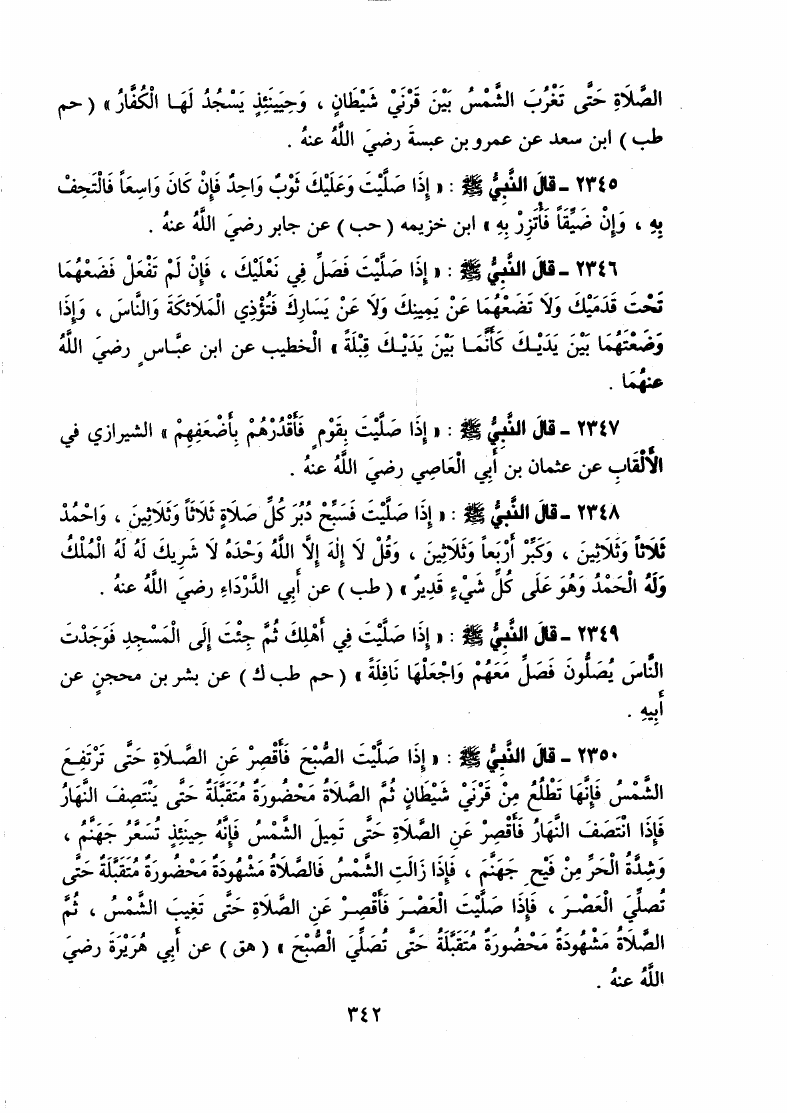 الصَّلَاةِ حَتَّى تَغْرُبَ الشَّمْسُ بَيْنَ قَرْنَيْ شَيْطَانٍ ، وَحِينَئِذٍ يَسْجُدُ لَهَا الْكُفَّارُ » ( حم
طب ) ابن سعد عن عمرو بن عبسةَ رضيَ اللَّهُ عنهُ .
٢٣٤٥ ـ قالَ النَّبِيُّ ﷺ : « إِذَا صَلَّيْتَ وَعَلَيْكَ ثَوْبٌ وَاحِدٌ فَإِنْ كَانَ وَاسِعاً فَالْتَحِفْ
بِهِ ، وَإِنْ ضَيِّقاً فَأْتَزِرْ بِهِ » ابن خزيمه ( حب ) عن جابر رضيَ اللَّهُ عنهُ .
٢٣٤٦ ـ قالَ النَّبِيُّ ﷺ : « إِذَا صَلَّيْتَ فَصَلِّ فِي نَعْلَيْكَ ، فَإِنْ لَمْ تَفْعَلْ فَضَعْهُمَا
تَحْتَ قَدَمَيْكَ وَلَا تَضَعْهُمَا عَنْ يَمِينِكَ وَلَا عَنْ يَسَارِكَ فَتُؤْذِي الْمَلَائكَةَ وَالنَّاسَ ، وَإِذَا
وَضَعْتَهُمَا بَيْنَ يَدَيْكَ كَأَنَّمَا بَيْنَ يَدَيْكَ قِبْلَةٌ » الخطيب عن ابن عبَّاسٍ رضيَ اللَّهُ
عنهُمَا .
٢٣٤٧ ـ قالَ النَّبِيُّ ﷺ : « إِذَا صَلَّيْتَ بِقَوْمٍ فَأَقْدُرْهُمْ بِأَضْعَفِهِمْ » الشيرازي في
الأَلْقَابِ عن عثمان بن أَبِي الْعَاصِي رضيَ اللَّهُ عنهُ .
٢٣٤٨ ـ قالَ النَّبِيُّ ﷺ : « إِذَا صَلَّيْتَ فَسَبِّحْ دُبُرَ كُلِّ صَلَاةٍ ثَلَاثاً وَثَلَاثِينَ ، وَاحْمَدْ
ثَلَاثاً وَثَلَاثِينَ ، وَكَبِّرْ أَرْبَعاً وَثَلَاثِينَ ، وَقُلْ لَا إِلٰهَ إِلَّا اللَّهُ وَحْدَهُ لَا شَرِيكَ لَهُ لَهُ الْمُلْكُ
وَلَهُ الْحَمْدُ وَهُوَ عَلَى كُلِّ شَيْءٍ قَدِيرٌ » ( طب ) عن أَبِي الدَّرْدَاءِ رضيَ اللَّهُ عنهُ .
٢٣٤٩ ـ قالَ النَّبِيُّ ﷺ : « إِذَا صَلَّيْتَ فِي أَهْلِكَ ثُمَّ جِئْتَ إِلَى الْمَسْجِدِ فَوَجَدْتَ
النَّاسَ يُصَلُّونَ فَصَلِّ مَعَهُمْ وَاجْعَلْهَا نَافِلَةً » ( حم طب ك ) عن بشر بن محجن عن
أَبِيهِ .
٢٣٥٠ ـ قالَ النَّبِيُّ ﷺ : « إِذَا صَلَّيْتَ الصُّبْحَ فَأَقْصِرْ عَنِ الصَّلَاةِ حَتَّى تَرْتَفِعَ
الشَّمْسُ فَإِنَّهَا تَطْلُعُ مِنْ قَرْنَيْ شَيْطَانٍ ثُمَّ الصَّلَاةُ مَحْضُورَةٌ مُتَقَبَّلَةٌ حَتَّى يَنْتَصِفَ النَّهَارُ
فَإِذَا انْتَصَفَ النَّهَارُ فَأَقْصِرْ عَنِ الصَّلَاةِ حَتَّى تَمِيلَ الشَّمْسُ فَإِنَّهُ حِينَئِذٍ تُسَعَّرُ جَهَنَّمُ ،
وَشِدَّةُ الْحَرِّ مِنْ فَيْحِ جَهَنَّمَ ، فَإِذَا زَالَتِ الشَّمْسُ فَالصَّلَاةُ مَشْهُودَةٌ مَحْضُورَةٌ مُتَقَبَّلَةٌ حَتَّى
تُصَلِّيَ الْعَصْرَ ، فَإِذَا صَلَّيْتَ الْعَصْرَ فَأَقْصِرْ عَنِ الصَّلَاةِ حَتَّى تَغِيبَ الشَّمْسُ ، ثُمَّ
الصَّلَاةُ مَشْهُودَةٌ مَحْضُورَةٌ مُتَقَبَّلَةٌ حَتَّى تُصَلِّيَ الصُّبْحَ » ( هق ) عن أَبِي هُرَيْرَةَ رضيَ
اللَّهُ عنهُ .
٣٤٢